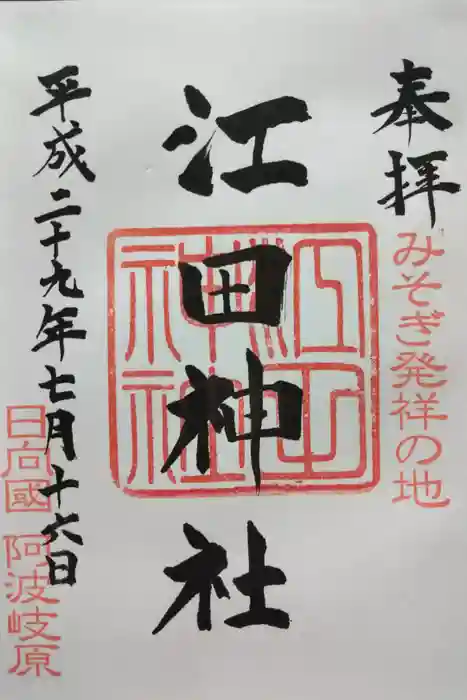 奉拝
みそぎ発祥の地
江田神社
江田神社
平成二十九年七月十六日
日向國 阿波岐原